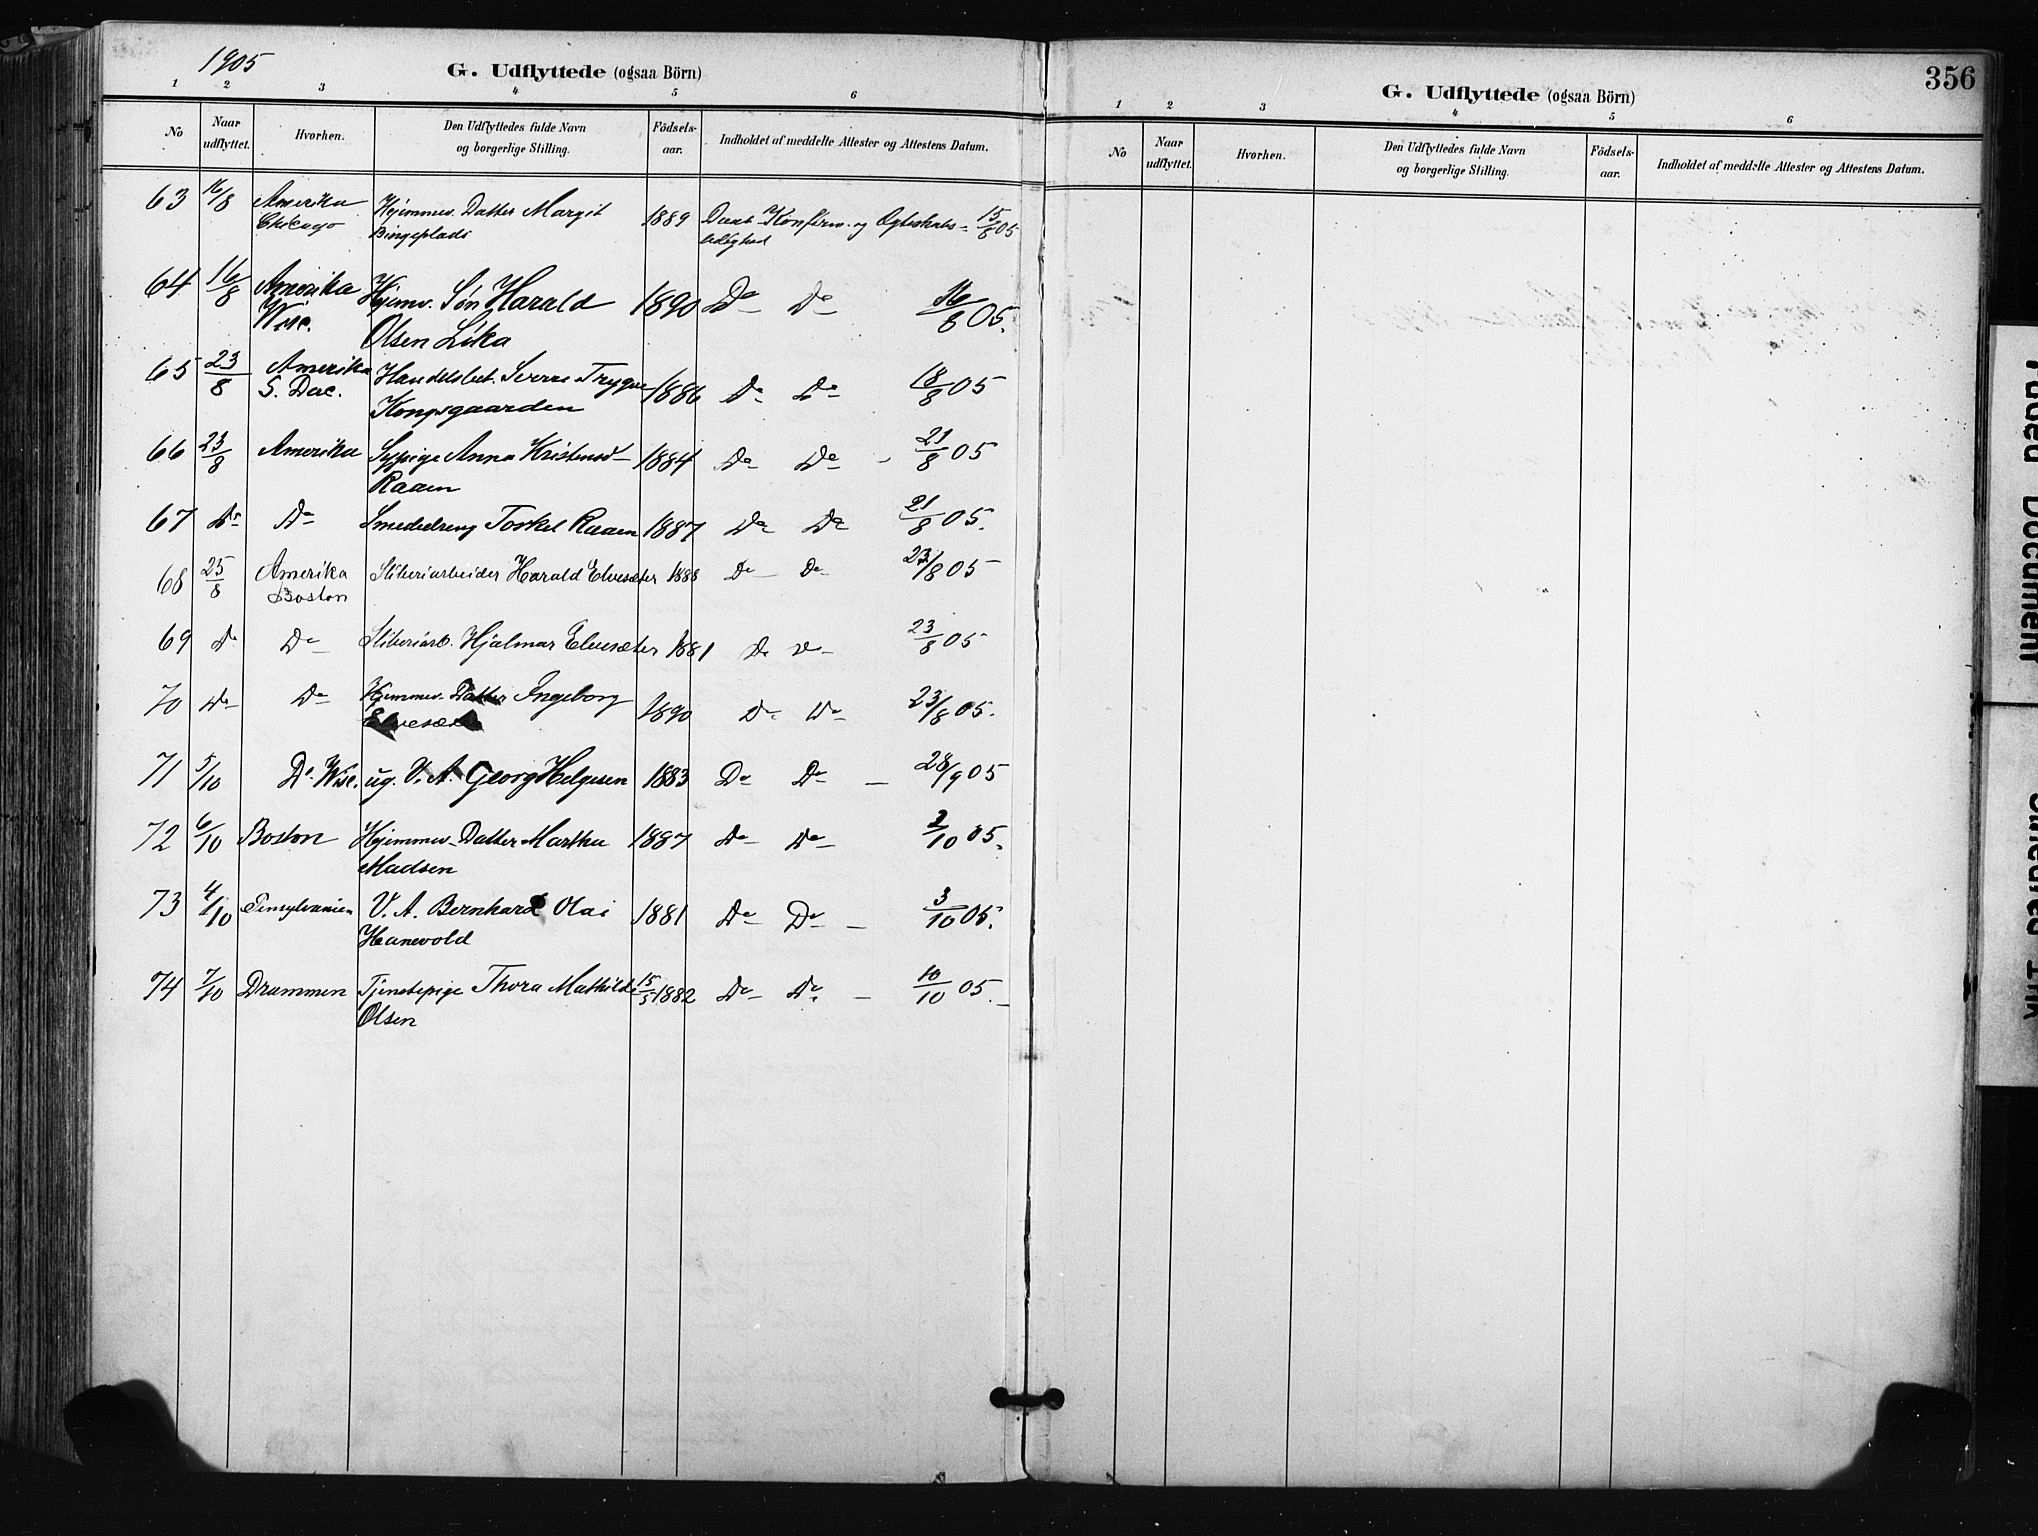 1905
G. Udflyttede (ogsaa Börn)
1 2 3 4 5 6
No Naar udflyttet. Hvorhen. Den Udflyttedes fulde Navn og borgerlige Stilling. Födsels-aar. Indholdet af meddelte Attester og Attestens Datum.
63 16/8 Amerika Hjemmev. Datter Margit 1889 Daab Konfirm. og Ægteskabs- 15/8 05
Chicago
64 16/8 Amerika Hjemv. Søn Harald 1890 Do Do 16/8 05.
Wisc. Olsen Lika
65 23/8 Amerika Handelsbet. Sverre Trygve 1886 Do Do 18/8 05
S. Dac. Kongsgaarden
66 23/8 Amerika Sypige Anna Kristensd 1884 Do Do - 21/8 05
Raaen
67 Do Do Smededreng Torkel Raaen 1887 Do Do 21/8 05.
68 25/8 Amerika Sliberiarbeider Harald Elvesæter 1888 Do Do 23/8 05
Boston
69 Do Do Sliberiarb. Hjalmar Elvesæter 1881 Do Do 23/8 05
70 Do Do Hjemmev. Datter Ingeborg 1890 Do Do 23/8 05.
Elvesæter
71 5/10 Do Wisc. ug. V. A. Georg Helgesen 1883 Do Do - 28/9 05
72 6/10 Boston Hjemmev. Datter Martha 1887 Do Do 2/10 05.
Madsen
73 4/10 Pensylvanien V. A. Bernhard Olai 1881 Do Do - 3/10 05.
Hanevold
74 7/10 Drammen Tjenestepige Thora Mathilde 15/5 1882 Do Do - 10/10 05.
Olsen
356
G. Udflyttede (ogsaa Börn)
1 2 3 4 5 6
No Naar udflyttet. Hvorhen. Den Udflyttedes fulde Navn og borgerlige Stilling. Födsels-aar. Indholdet af meddelte Attester og Attestens Datum.